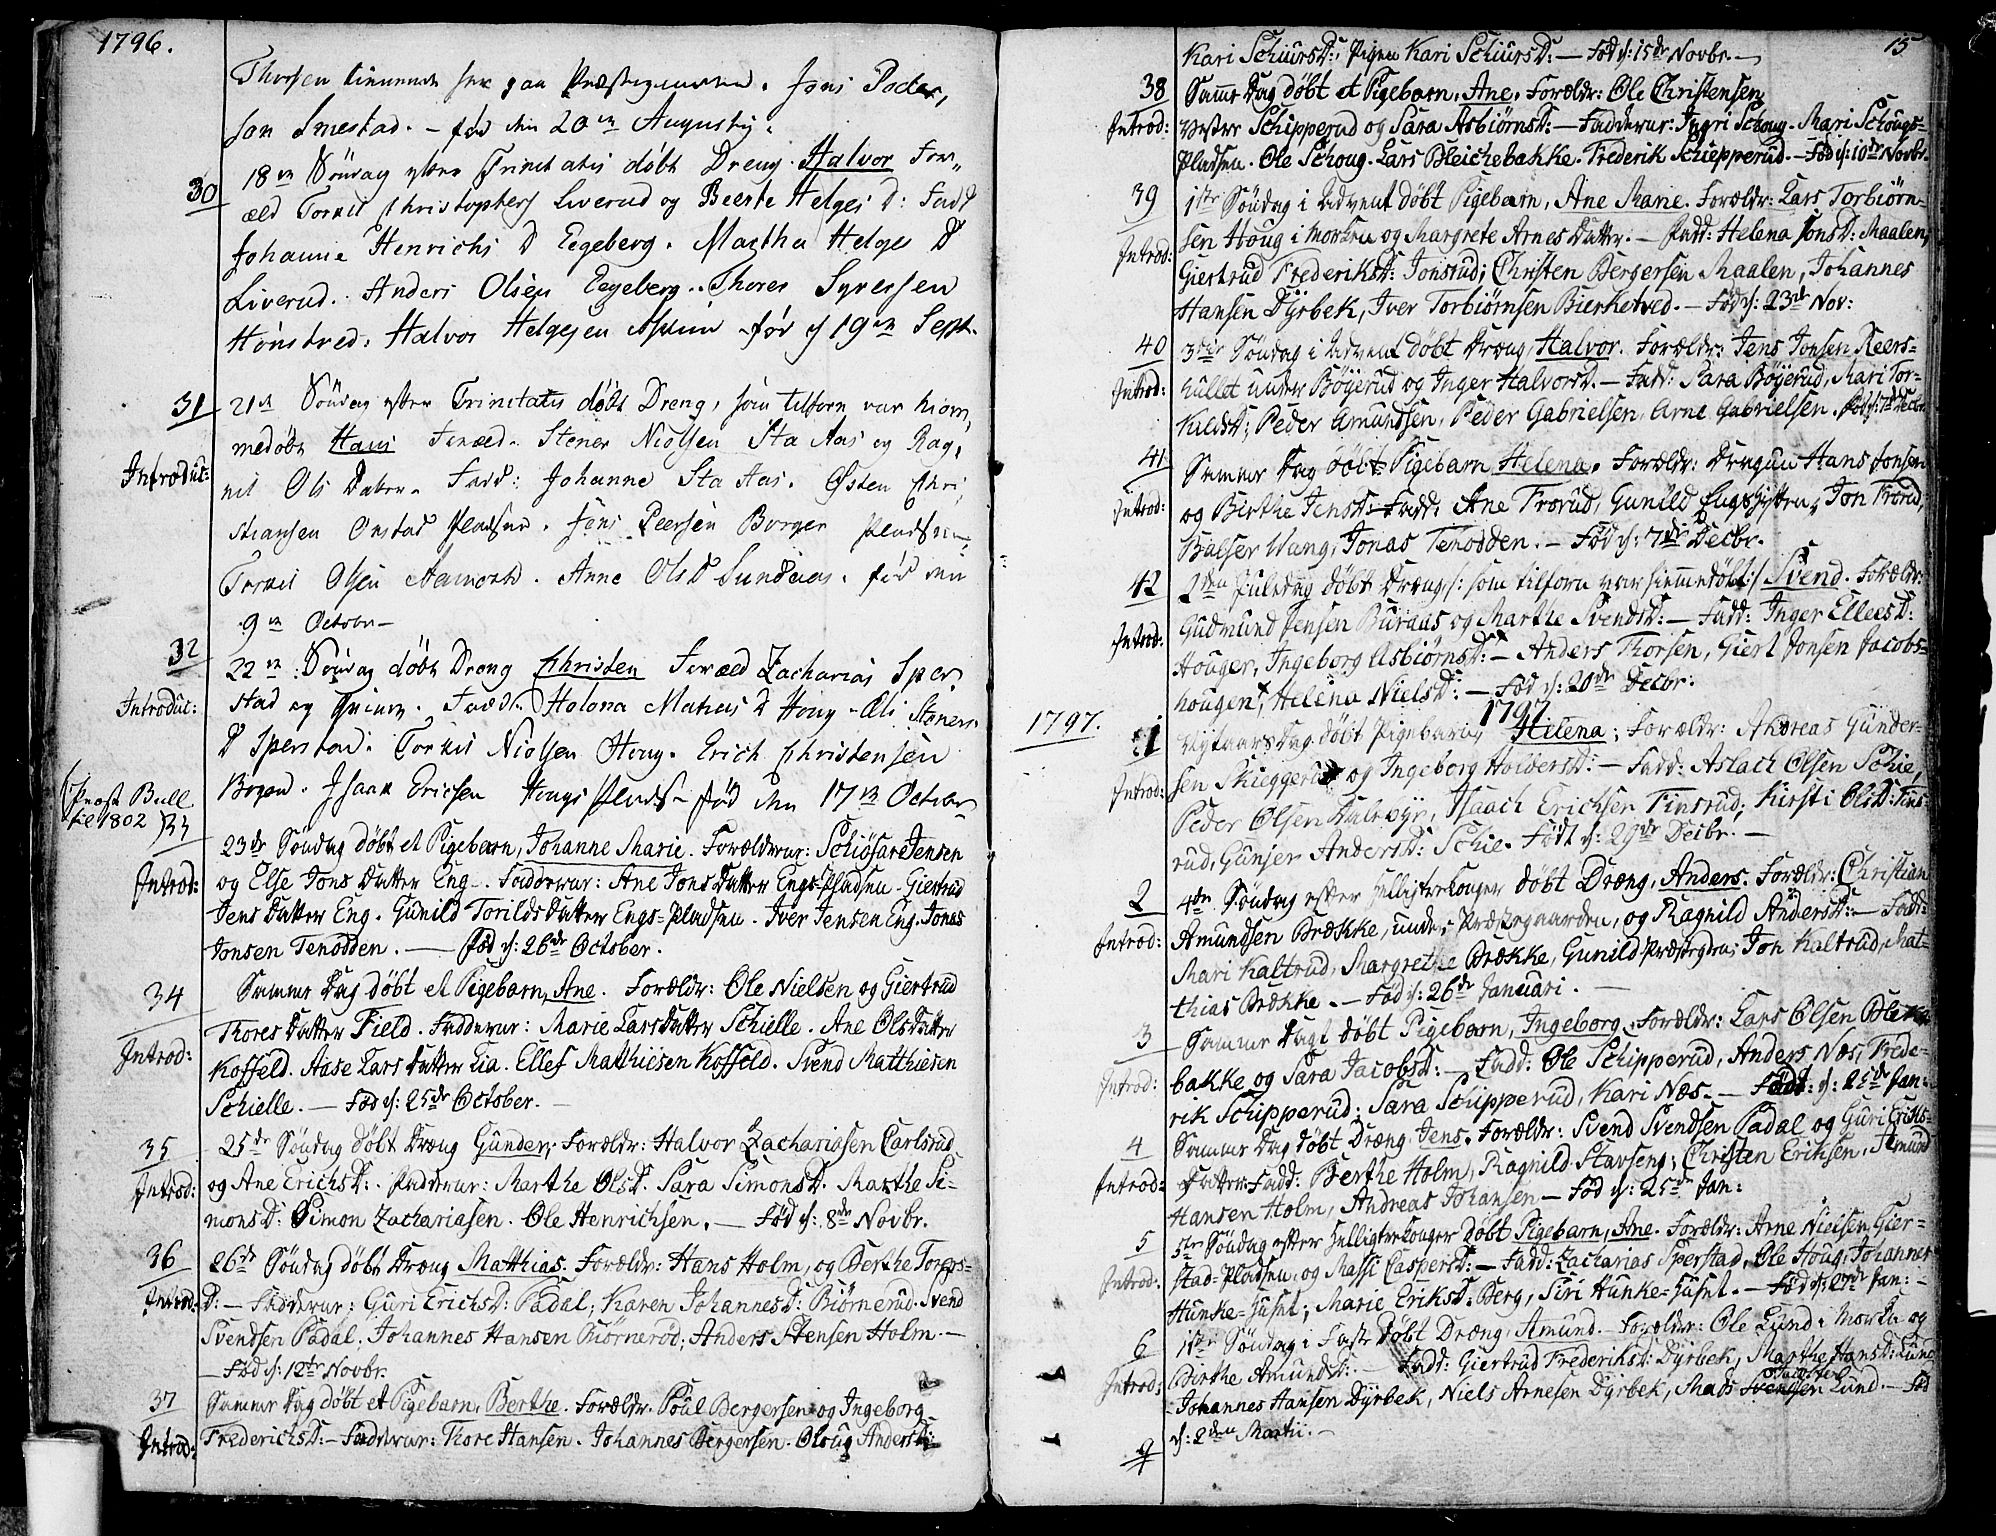 1796.
Thorsen tienende her paa Præstegaarden. Jens Peder,
sen Smestad. – fød den 20de Augusty.
30
18de Söndag efter Trinitatis döbt Dreng. Halvor For,,
æld Torkil Christophers Liverud og Beerte Helges D: Fad
Johanne Henrichs D Eegeberg. Martha Helges D
Liverud. Anders Olsen Eegeberg. Thores Syversen
Honstved. Halvor Helgesen – fød d 19de Sept.
31
21de Söndag efter Trinitatis döbt Dreng, som tilforn var hiem,
medöbt Hans Foræld. Stener Nielsen Sta Aas og Rag,
Introduc:
nil Ols Dater. Fadd: Johanne Sta Aas. Østen Chri,
stiansen Onstad Pladsen. Jens Peersen Borger Pladsen
Torkil Olsen Aamodt. Anne Ols D Sundaas. fød den
9de Octobr –
32
22de Söndag döbt Dreng Christen Foræld Zacharias Sper,
Introduc:
stad og Qvinde. Fadd. Helena Mathias D Houg – Eli Steners
D Sperstad. Torkil Nielsen Houg. Erich Christensen
Isaak Ericsen Hougs Plads – fød den 17de Octobr
(Prost Bull
til 1802) 33
23de Söndag döbt et Pigebarn, Johanne Marie. Forælderne: Schiösar Jensen
Introd:
og Else Jons Datter Eng –. Fadderne: Ane Jons Datter Engs-Pladsen. Giertrud
Jens Datter Eng. Gunild Torilds Datter Engs-Pladsen. Iver Jensen Eng. Jonas
Jonsen Tenodden. – Fød d: 26de October.
34
Samme Dag döbt et Pigebarn, Ane. Forældr: Ole Nielsen og Giertrud
Thores Datter Field. Fadderne: Marie Lars Datter Schielle. Ane Ols Datter
Introd:
Koffeld. Aase Lars Datter Lia. Ellef Matthiesen Koffeld. Svend Matthiesen
Schielle. – Fød d: 25de October. –
35
25de Söndag döbt Dreng Gunder; Forældr: Halvor Zachariasen Carlsrud
Introd:
og Ane Erichs D: Fadderne: Marthe Ols D. Sara Simons D. Marthe Si-
mons D: Simon Zachariasen. Ole Henrichsen. – Fød d: 8de Novbr.
36
26de Söndag döbt Dreng Matthias. Forældr: Hans Holm, og Berthe Torers-
Introd:
D: – Fadderne: Guri Erichs D: Padal; Karen Johannes D: Biörnerud. Svend
Svendsen Padal; Johannes Hansen Biörnerød; Anders Stensen Holm. –
– Fød d: 12te Novbr.
37
Samme Dag döbt et Pigebarn, Berthe. Forældr. Poul Bergersen og Ingeborg
Introd:
Frederichs D: – Fadderne: Thore Hansen. Johannes Bergersen. Oloug Anders D:
15
Kari Schiurs D: Pigen Kari Schiurs D: – Fød d: 15de Novbr. –
38
Samme Dag döbt et Pigebarn, Ane. Forældr: Ole Christensen
Introd:
Vestre Schipperud og Sara Asbiörns D: – Fadderne: Ingri Schoug. Mari Schougs-
Pladsen. Ole Schoug. Lars Bleichebakke. Frederik Schiepperud. – Fød d: 10de Novbr.
39
1ste Söndag i Advent döbt Pigebarn, Ane Marie. Forældr: Lars Torbiörn-
Introd:
sen Houg i Morken og Margrete Arnes Datter. – Fadd: Helena Jons D: Maalen,
Giertrud Frederiks D: Jonsrud; Christen Bergersen Maalen, Johannes
Hansen Dyrbek, Iver Torbiörnsen Bierketved. – Fød d: 23de Nov:
40
3die Söndag i Advent döbt Dreng Halvor. Forældr: Jens Jonsen Keers-
Introd:
hullet under Böyerud og Inger Halvors D. – Fadd: Sara Böyerud, Mari Tor-
kilds D; Peder Amundsen, Peder Gabrielsen, Arne Gabrielsen. Fød d: 7de Decbr
41
Samme Dag döbt Pigebarn Helena. Forældr: Dragun Hans Jonsen
Introd:
og Birthe Jens D. Fadd: Ane Frorud, Gunild Jon Frorud,
Balser Wang, Jonas Tenodden. – Fød d: 7de Decbr.
42
2den Juledag döbt Dreng /: som tilforn var hiemmedöbt :/ Svend. Forældr:
Introd:
Gudmund Jensen Buraas og Marthe Svends D: – Fadd: Inger Ellees D:
Houger, Ingeborg Asbiörns D: – Anders Thorsen, Giert Jonsen Jacobs-
hougen, Helena Niels D: – Fød d: 20de Decbr:
1797
1797.
1
Nytaarsdag döbt Pigebarn Helena; Forældr: Andreas Gunder-
Introd:
sen Skiuggerud og Ingeborg Holders D: – Fadd: Aslach Olsen Schie,
Peder Olsen Isaach Erichsen Finsrud; Kirsti Ols D: Fins-
rud, Gunjer Anders D: Schie. Født d: 29de Decbr. –
2
4de Söndag efter Helligtrekonger döbt Dreng, Anders. Forældr: Christian
Introd:
Amundsen Brække, under Præstegaarden, og Ragnild Anders D: – Fadd:
Mari Kaltrud, Margrethe Brække, Gunild Præstegrdn; Jon Kaltrud, Mat-
thias Brække. – Fød d: 26de Januari. –
3
Samme Dagt döbt Pigebarn, Ingeborg. Forældr: Lars Olsen Bleke-
Introd:
bakke og Sara Jacobs D: – Fadd: Ole Schipperud, Anders Næs, Frede-
rik Schipperud; Sara Schipperud, Kari Næs. – Født: d: 25de Jan:
4
Samme Dag döbt Dreng Jens. Forældr: Svend Svendsen Padal og Guri Eriks-
Introd:
Datter. Fadd: Berthe Holm, Ragnild Stavseng; Christen Eriksen, Amund
Hansen Holm, Andreas Johansen – Fød d: 25de Jan:
5
5te Söndag efter Helligtrekonger döbt Pigebarn, Ane. Forældr: Arne Nielsen Gier-
Introd:
stad-Pladsen, og Massi Caspers D: – Fadd: Zacharias Sperstad, Ole Houg, Johannes
Hunke-Huset; Marie Eriks D: Berg, Siri Hunke-Huset. – Fød d: 27de Jan: –
6
1ste Söndag i Faste döbt Dreng, Amund. Forældr: Ole Lund i Morken og
Introd:
Birthe Amunds D: – Fadd: Giertrud Frederiks D: Dyrbek, Marthe Hans D: Lund
Johannes Hansen Dyrbek, Niels Arnesen Dyrbek, Mads Svendsen Lund. – Fød
d: 2den Martii. –